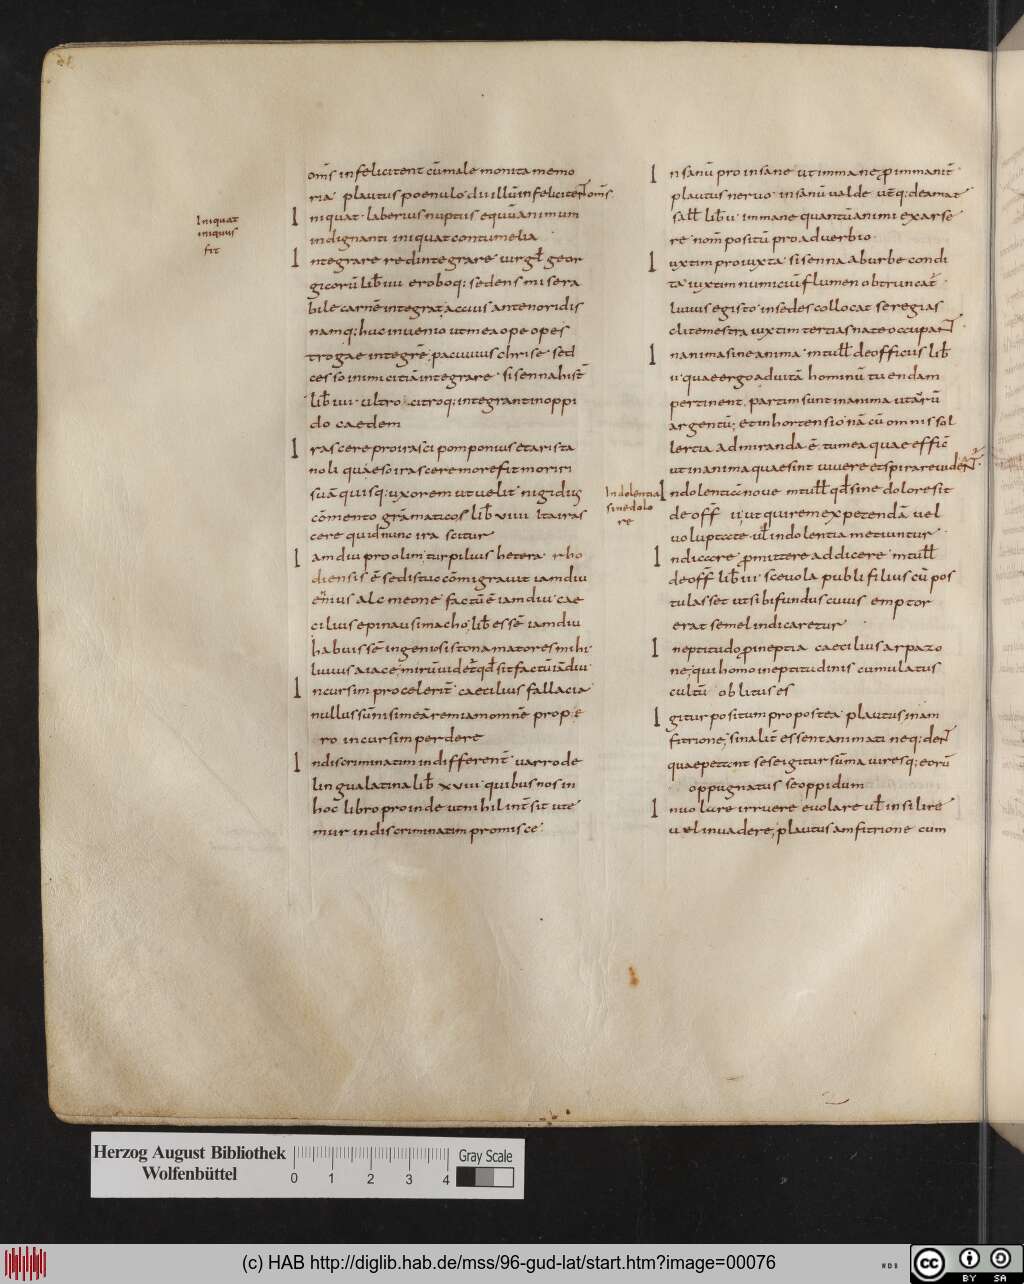 Iniquat
iniquus
fit
om̄s infelicitent cū male monita memo
ria plautus poenulo dii illū infelicitent om̄s
Iniquat laberius nuptiis equū animum
indignanti iniquat contumelia
Integrare redintegrare virgł geor
gicorū lib̄ iiii eroboq; sedens misera
bile carnē integrat; accius antenoridis
namq; huc invenio ut mea ope opes
trogae integrē; pacuvius chrise sed
cesso inimicitiā integrare sisenna hist̄
lib̄ iiii ultro citroq; integrant in oppi
do caedem
Irascere pro irasci pomponius et arista
noli quaeso irascere more fit moriri
suā quisq; uxorem ut velit nigidius
cōmento grāmaticos lib̄ viiii Ita iras
cere quid nunc ira scitur
Iam diu pro olim; turpilius hetera rho
diensis ē sedis tuo cōmigravit iam diu
enn̄ius alcmeone factū ē iam diu cae
cilius epinausimacho; lib̄esse iam diu
habuisse ingenio sisto namatores mihi
livius aiace; mirū videt̄ qd̄ sit factū iā diu
Incursim pro celerit̄ caecilius fallacia
nullus sum nisi meā rem iam omnē prope
ro incursim perdere
Indiscriminatim indifferent̄ varro de
lingua latina lib̄ xviii quibus nos in
hoc libro proinde ut nihil int̄sit ute
mur indiscriminatim promisce
Insanū pro insane ut immane pro immanit̄
plautus nervo insanū valde ut̄q; deamat
sall̄ lib̄ ii immane quantū animi exarse
re nom̄ positū pro adverbio
Iuxtim pro iuxta sisenna ab urbe condi
ta iuxtim numiciū flumen obtruncat̄
livius egisto in sedes collocat se regias
clitemestra iuxtim tertias natae occupant
Inanima sine anima m tull̄ de officiis lib̄
ii quae ergo ad vitā hominū tuendam
pertinent; partim sunt inanima ut aurū
argentū; et in hortensio nā cū omnis sol
lertia admiranda ē tum ea quae effic̄
ut inanima quae sint vivere et spirare videant̄
Indolentia
sine dolo
re
Indolentiā nove m tull̄ qd̄ sine dolore sit
de off̄ ii; ut qui rem expetendā vel
voluptate vl̄ indolentia metiuntur
Indicere promittere addicere m tull̄
de off̄ lib̄ iii scevola publi filius cū pos
tulasset ut sibi fundus cuius emptor
erat semel indicaretur
Ineptitudo pro ineptia caecilius arpazo
ne; qui homo ineptitudinis cumulatus
cultū oblitus es
Igitur positum pro postea plautus inam
fitrione; sin alit̄ essent animati neq; dent
quae petant sese igitur sūma viresq; eorū
oppugnatus se oppidum
Involare irruere evolare vl̄ insilire
vel invadere; plautus amfitrione cum
Herzog August Bibliothek
Wolfenbüttel
0 1 2 3 4
Gray Scale
(c) HAB http://diglib.hab.de/mss/96-gud-lat/start.htm?image=00076
WDB
cc BY SA